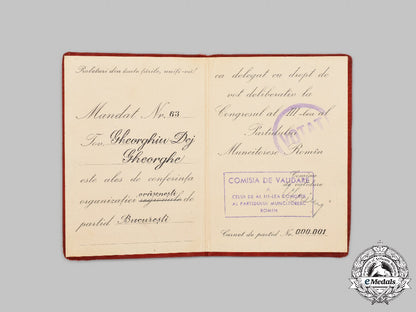 Proletari din toate țările, uniți-vă!
Mandat Nr. 63
Tov. Gheorghiu-Dej
Gheorghe
este ales de conferința
orășenești
organizației regionale de
partid București
ca delegat cu drept de
vot deliberativ la
Congresul al III-lea al
Partidului
Muncitoresc Romîn
Comisia
de validare
COMISIA DE VALIDARE
A
CELUI DE AL III-LEA CONGRES
AL PARTIDULUI MUNCITORESC
ROMÎN
Carnet de partid No. 000.001
e Medals